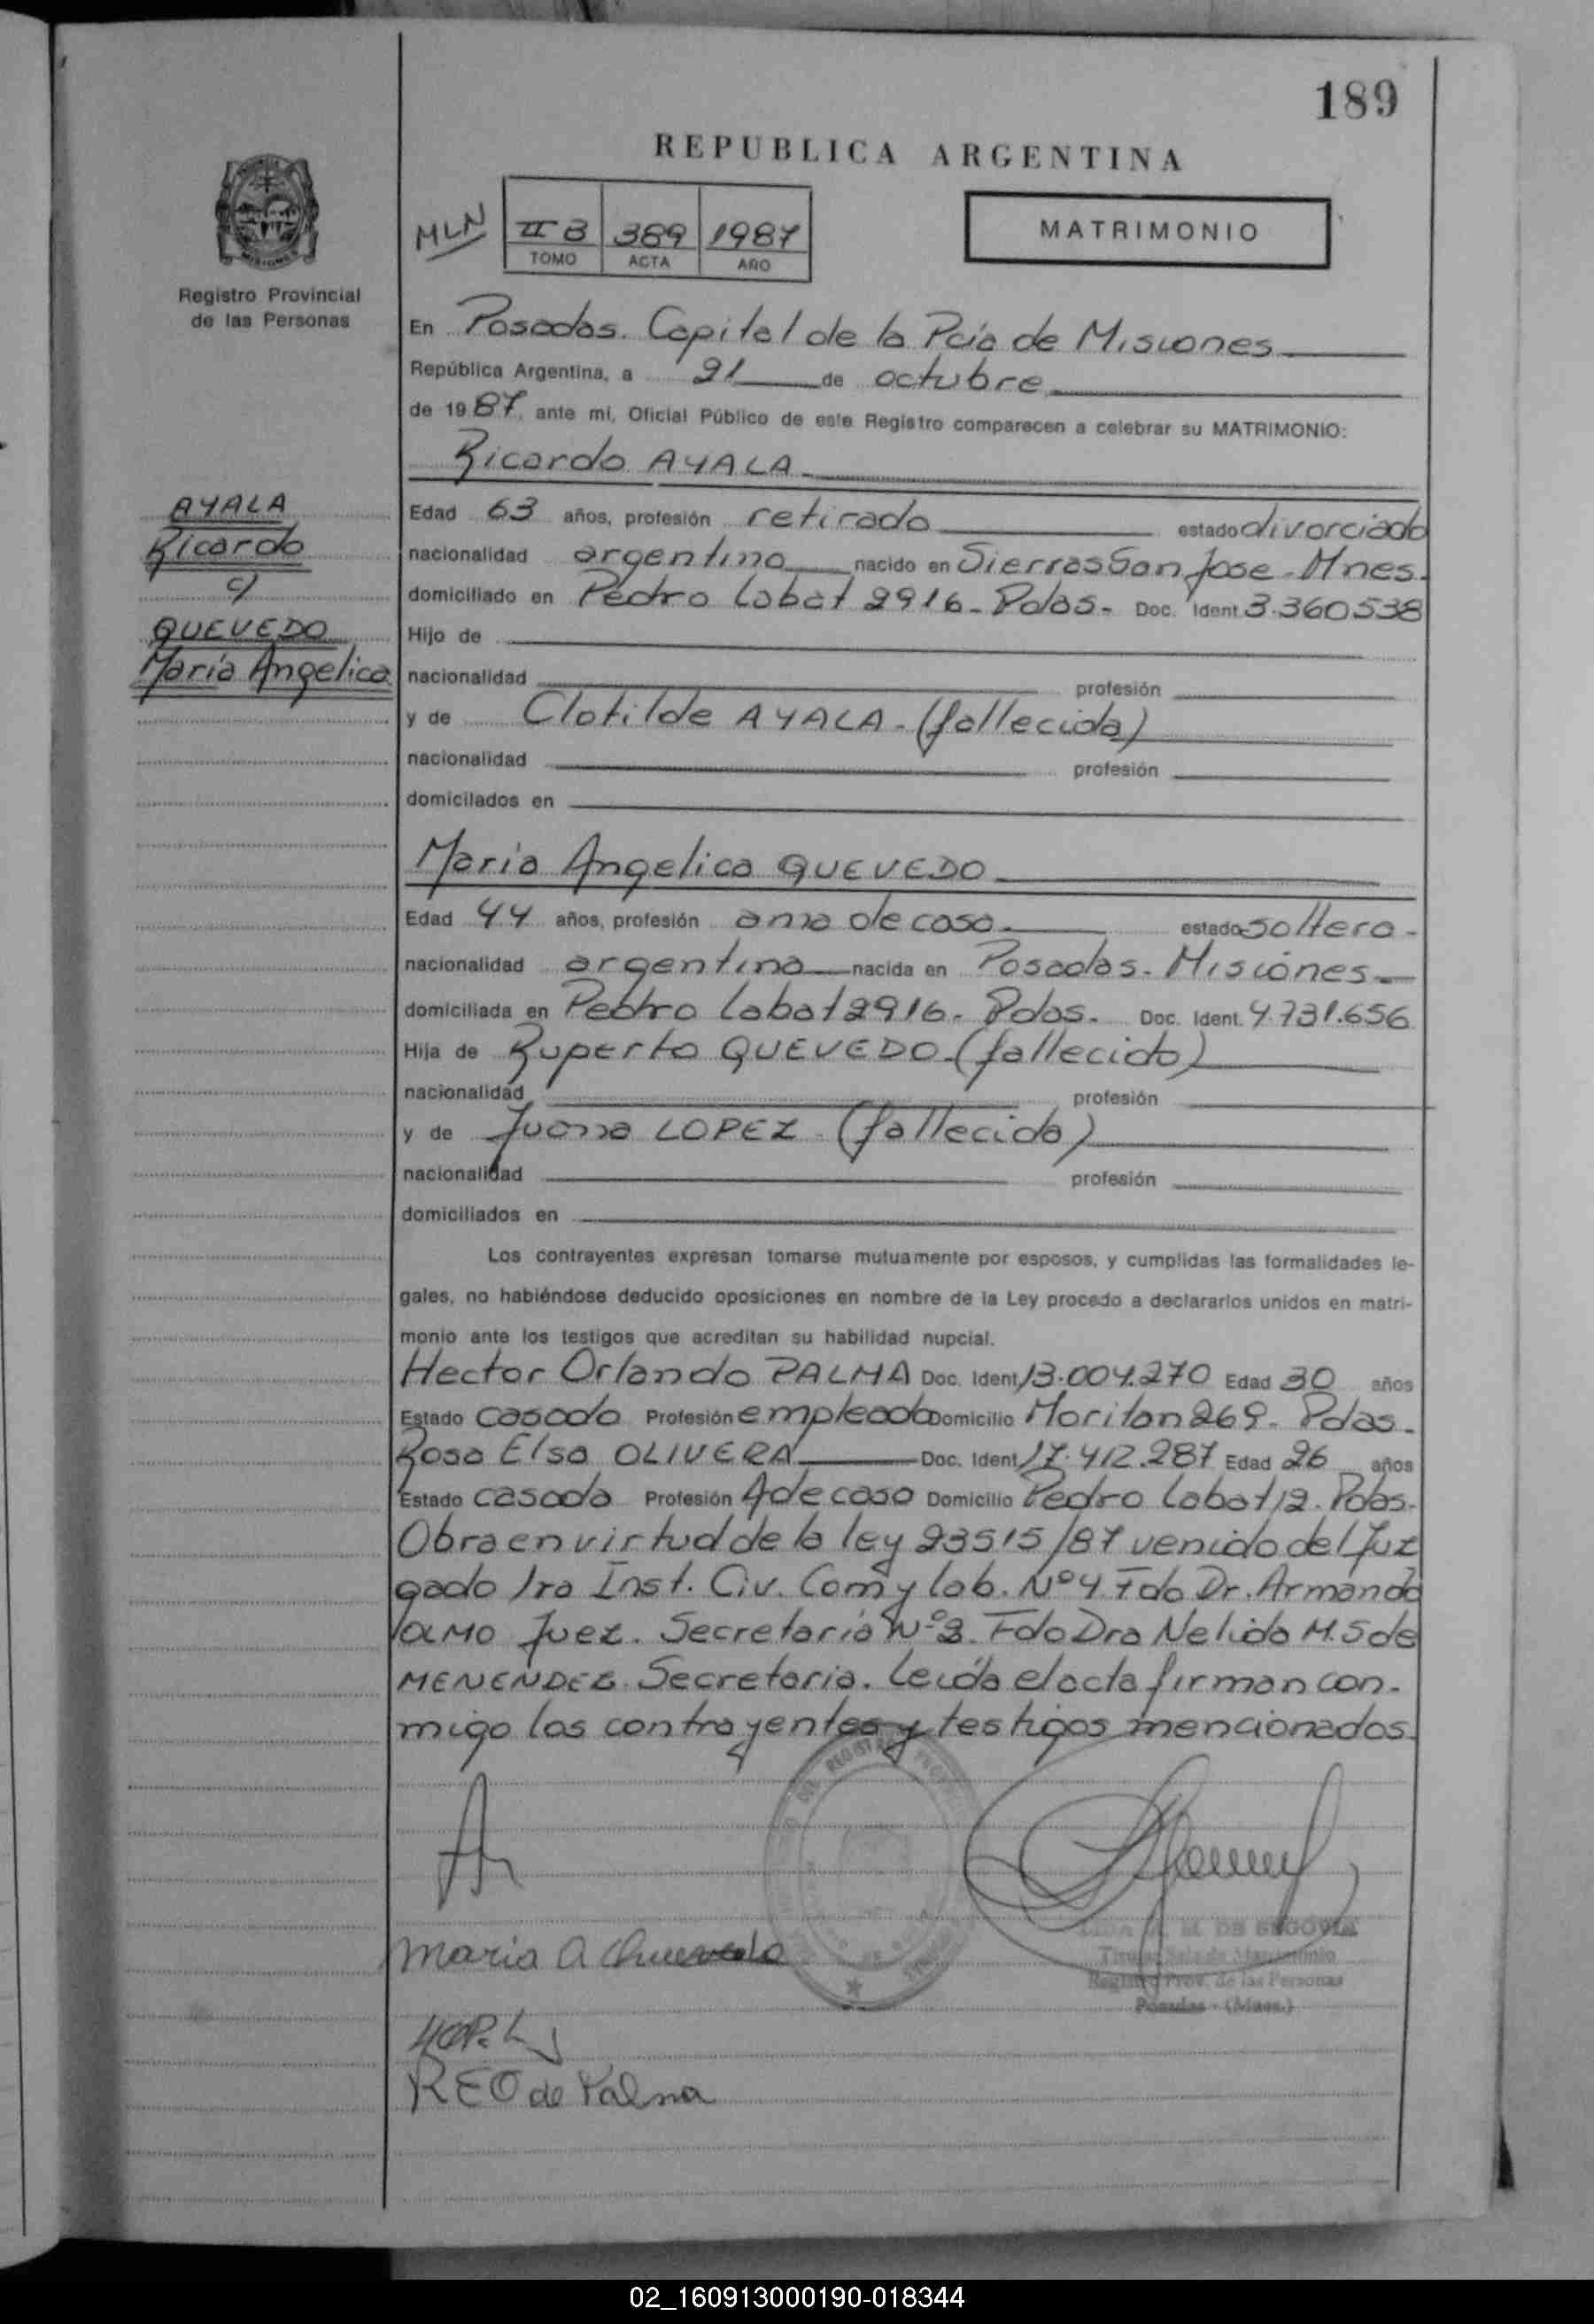 189
REPUBLICA ARGENTINA
MLN
II B 389 1987
TOMO ACTA AÑO
MATRIMONIO
Registro Provincial
de las Personas
En Posadas. Capital de la Pcia de Misiones
República Argentina, a 21 de octubre
de 1987, ante mi, Oficial Público de este Registro comparecen a celebrar su MATRIMONIO:
Ricardo AYALA
AYALA
Ricardo
c/
QUEVEDO
María Angelica
Edad 63 años, profesión retirado estado divorciado
nacionalidad argentino nacido en Sierras San Jose - Mnes.
domiciliado en Pedro Labat 2916 - Pdas - Doc. Ident 3.360538
Hijo de
nacionalidad profesión
y de Clotilde AYALA - (fallecida)
nacionalidad profesión
domicilados en
Maria Angelica QUEVEDO
Edad 44 años, profesión ama de casa estado soltera -
nacionalidad argentina nacida en Posadas - Misiones
domiciliada en Pedro Labat 2916 - Pdas - Doc. Ident. 4.731.656
Hija de Ruperto QUEVEDO - (fallecido)
nacionalidad profesión
y de Juana LOPEZ - (fallecida)
nacionalidad profesión
domiciliados en
Los contrayentes expresan tomarse mutuamente por esposos, y cumplidas las formalidades le-
gales, no habiéndose deducido oposiciones en nombre de la Ley procedo a declararlos unidos en matri-
monio ante los testigos que acreditan su habilidad nupcial.
Hector Orlando PALMA Doc. Ident 13.004.270 Edad 30 años
Estado casado Profesión empleado Domicilio Moritan 269 - Pdas -
Rosa Elsa OLIVERA Doc. Ident 17.412.287 Edad 26 años
Estado casada Profesión A de casa Domicilio Pedro Labat 12. Pdas -
Obra en virtud de la ley 23515/87 venido del Juz
gado 1ra Inst. Civ. Com y lab. Nº 4 Fdo Dr. Armando
Juez. Secretaría Nº 3. Fdo Dra Nelida M. S de
MENENDEZ. Secretaria. Leída el acta firman con-
migo los contrayentes y testigos mencionados
maria a
DE SEGOVIA
Titular Sala de Matrimonio
Registro Prov. de las Personas
Posadas - (Mnes.)
REO de Palma
02_160913000190-018344